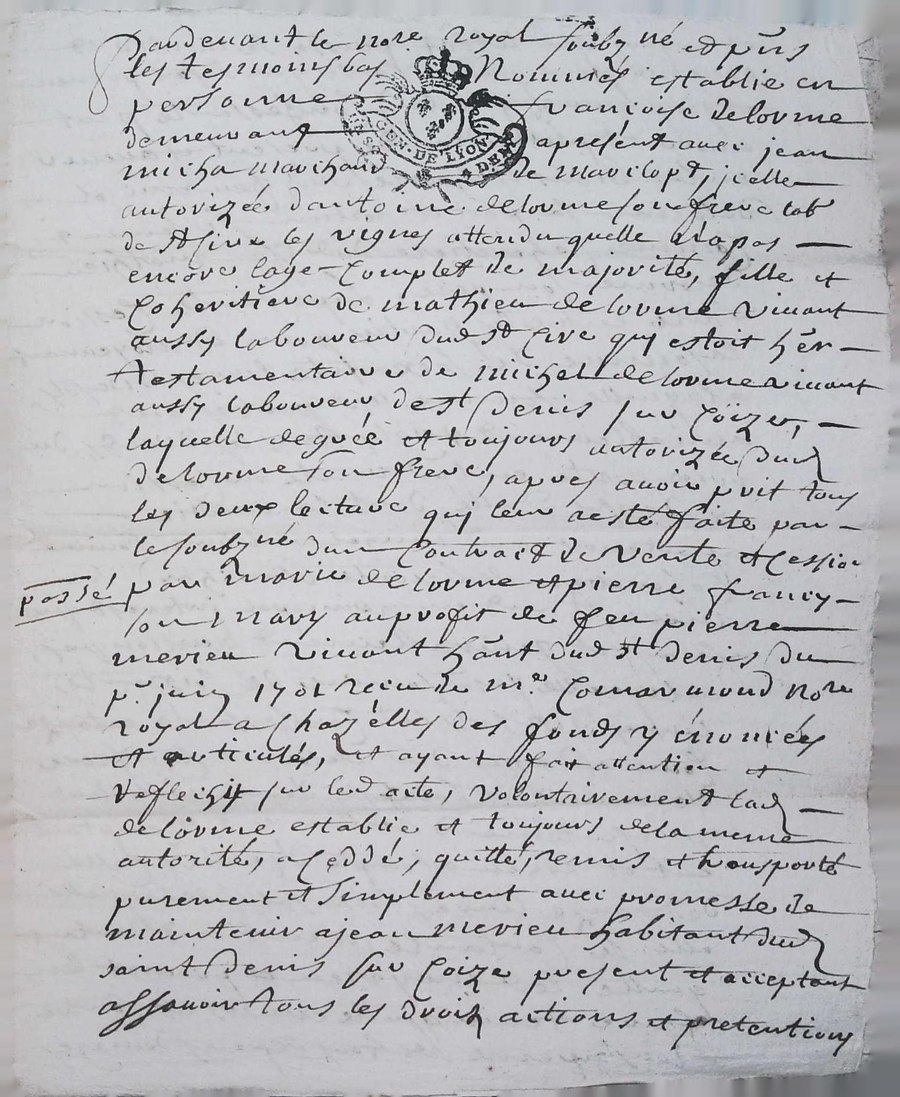 Pardevant le no.re royal soubz.né et pn̄s
les tesmoins bas Nommés establie en
personne françoise delorme
demeurant apresent avec jean
micha marchand de mariclopt, icelle
autorizée dantoine delorme son frere lab.r
de St Cire les vignes attendu quelle na pas
encore lage complet de majorité, fille et
coheritiere de mathieu delorme vivant
aussy laboureur dud. St Cire qui estoit hẽr
testamentaire de michel delorme vivant
aussy laboureur de St Denis sur Coize,
laquelle de gréé et toujours autorizée dud
delorme son frere, apres avoir prit tous
les deux lecture qui leur a esté faite par
le soubz.né dun Contract de vente et cession
passé par marie delorme et pierre francy
son mary au profit de feu pierre
merieu vivant hãnt dud. St denis du
p.r juin 1701 receu de m.e Comarmond No.re
royal a Chazelles des fonds y énoncés
et articulés, et ayant fait attention et
reflechit sur led acte, volontairement lad
delorme establie et toujours de la meme
autorité, a ceddé, quitté, remis et transporté
purement et simplement avec promesse de
maintenir a jean merieu habitant dud
saint Denis sur Coize present et acceptant
assavoir tous les droits actions et pretentions
GEN·DE LYON